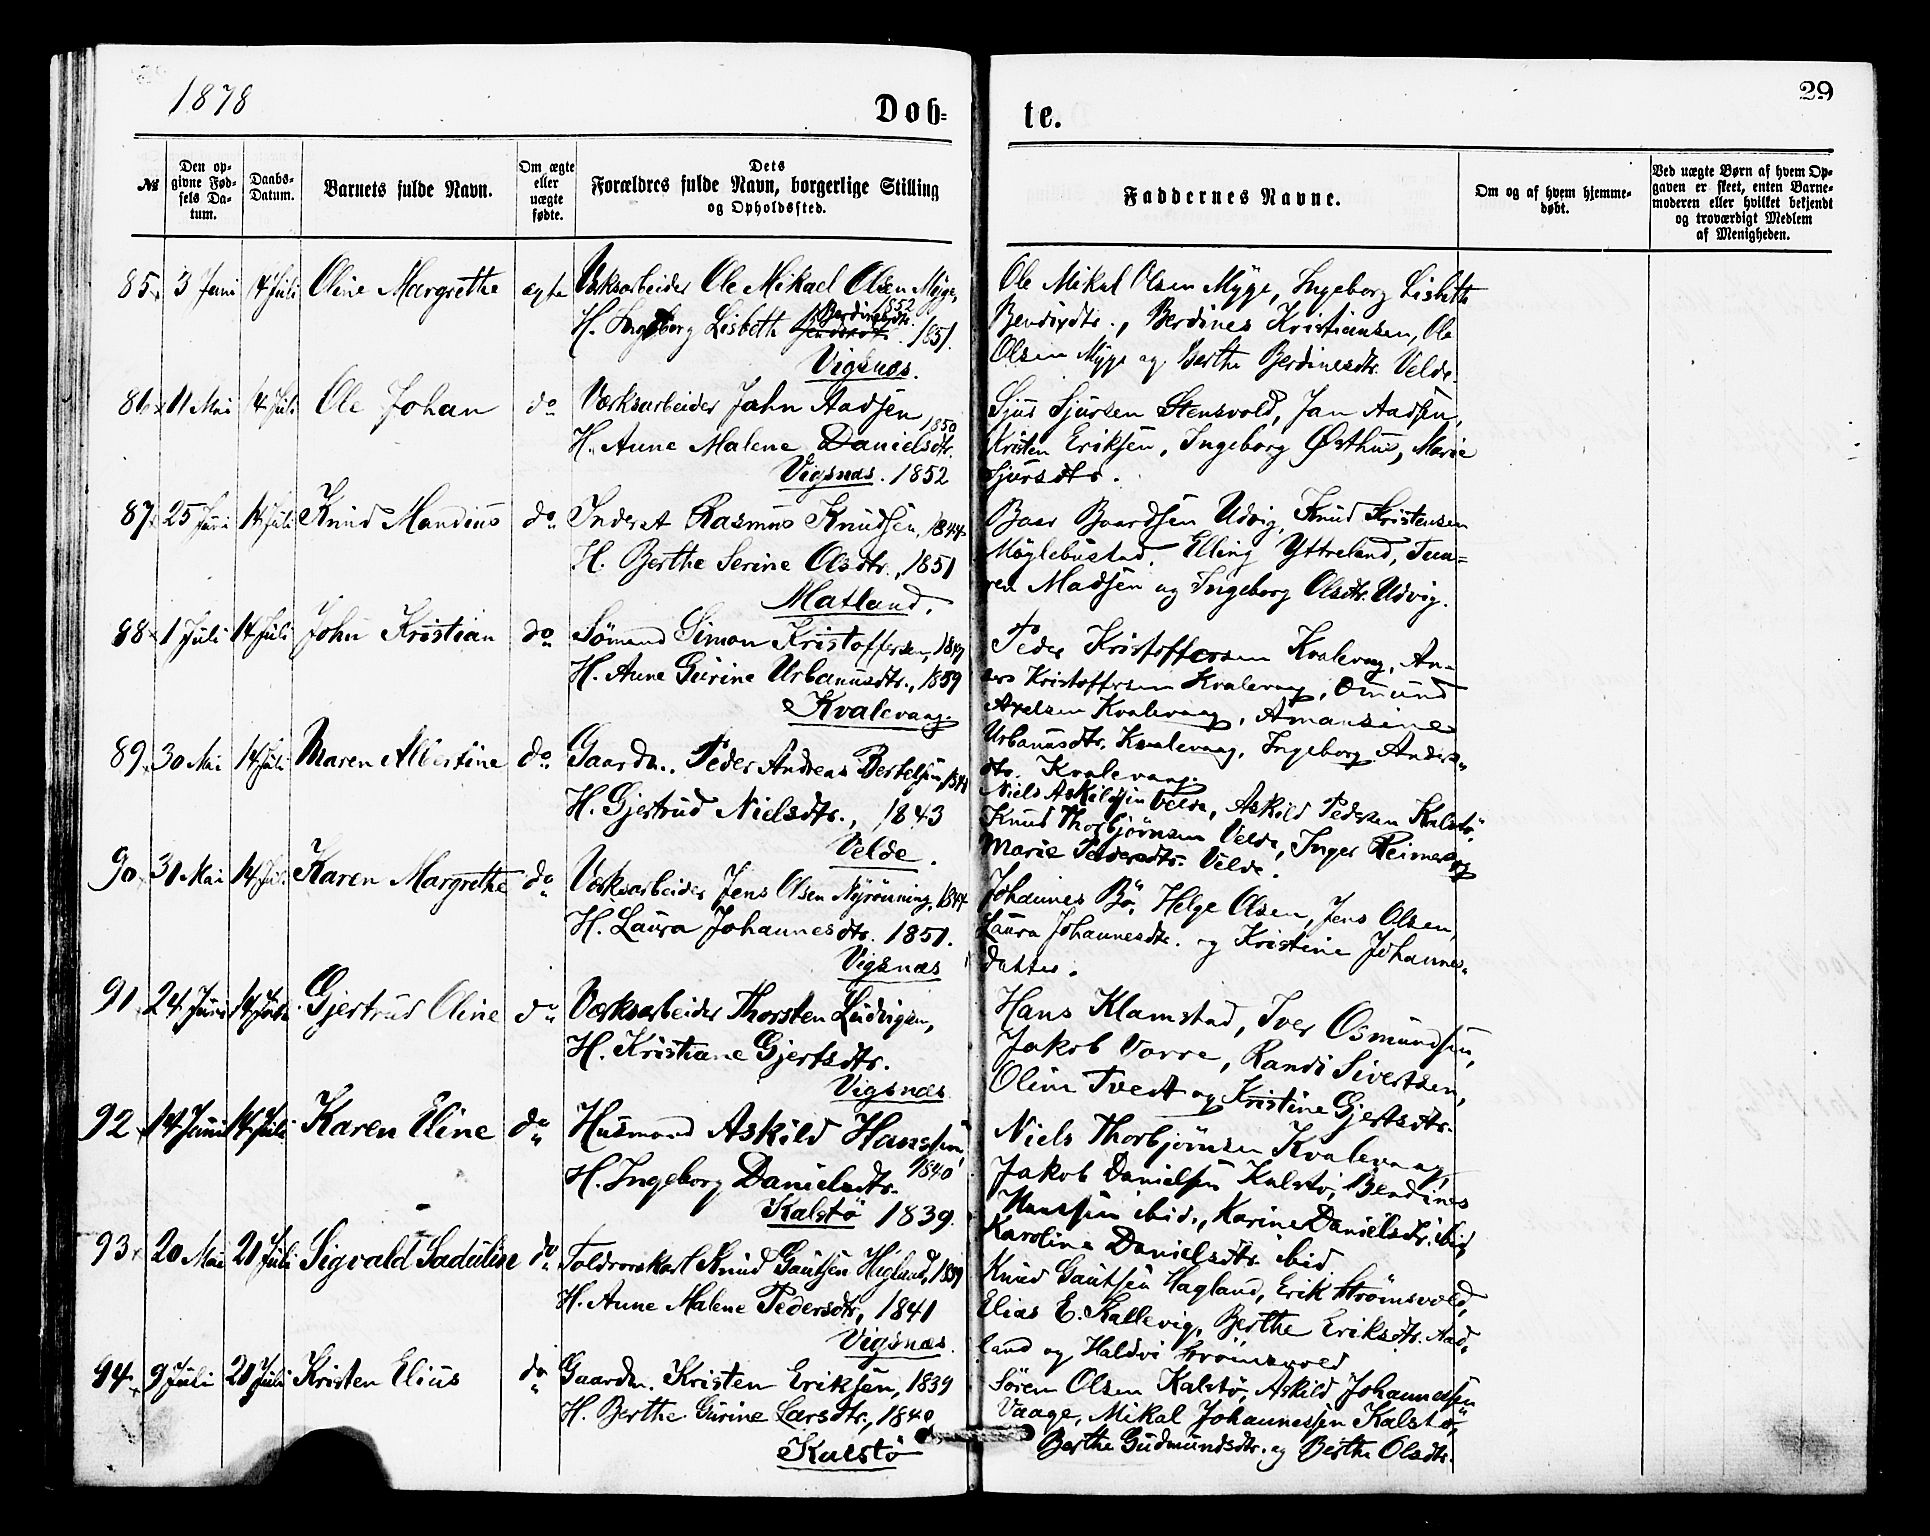 1878
Døb-
te.
29
№
Den op-
givne Fød-
sels Da-
tum.
Daabs-
Datum.
Barnets fulde Navn.
Om ægte
eller
uægte
fødte.
Dets
Forældres fulde Navn, borgerlige Stilling
og Opholdssted.
Faddernes Navne.
Om og af hvem hjemme-
døbt.
Ved uægte Børn af hvem Op-
gaven er skeet, enten Barne-
moderen eller hvilket bekjendt
og troværdigt Medlem
af Menigheden.
85 3 Juni 14 Juli Oline Margrethe ægte Værksarbeider Ole Mikael Olsen Myge,
1852
Berdinesdtr.
H. Ingeborg Lisbeth 1851.
Vigsnæs.
Ole Mikal Olsen Myge, Ingeborg Lisbeth
Bendixdtr., Berdines Kristiansen, Ole
Olsen Myge og Berthe Berdinesdtr. Velde.
86 11 Mai 14 Juli Ole Johan do Værksarbeider John Aadsen
1850
H. Anne Malene Danielsdtr.
Vigsnæs. 1852
Sjur Sjursen Stensvold, Jan Aadsen,
Kristen Eriksen, Ingeborg Østhus, Marie
Sjursdtr.
87 25 Juni 14 Juli Knud Mandius do Inderst Rasmus Knudsen, 1844
H. Berthe Serine Olsdtr., 1851
Matland.
Baar Baardsen Udvig, Knud Kristensen
Møglebustad, Elling Yttreland, Tem-
ren Madsen og Ingeborg Olsdtr. Udvig.
88 1 Juli 14 Juli John Kristian do Sømand Simon Kristoffersen, 1849
H. Anne Gurine Urbanusdtr., 1859
Kvalevaag.
Peder Kristoffersen Kvalevag, An-
ders Kristoffersen Kvalevaag, Omund
Axelsen Kvalevaag, Amansine
Urbanusdtr. Kvalevaag, Ingeborg Anders-
dtr. Kvalevaag.
89 30 Mai 14 Juli Maren Albertine do Gaardm. Peder Andreas Bertelsen, 1841
H. Gjertrud Nielsdtr., 1843
Velde.
Niels Askildsen Velde, Askild Pedersen Kalstø,
Knud Thorbjørnsen Velde, Inger Reimers og
Marie Pedersdtr. Velde.
90 31 Mai 14 Juli Karen Margrethe do Værksarbeider Jens Olsen Nyrönning, 1844
H. Laura Johannesdtr. 1851.
Vigsnæs
Johannes Bö, Helge Olsen, Jens Olsen,
Laura Johannesdtr. og Kristine Johannes-
datter.
91 24 Juni 14 Juli Gjertrud Oline do Værksarbeider Thorsten Ludvigsen,
H. Kristiane Gjertsdtr.
Vigsnæs
Hans Klamstad, Iver Osmundsen,
Jakob Vorre, Randi Sivertsen,
Oline Tvedt og Kristine Gjertsdtr.
92 14 Juni 14 Juli Karen Eline do Husmand Askild Hanssen,
1840
H. Ingeborg Danielsdtr.
Kalstö 1839.
Niels Thorbjörnsen Kvalevaag,
Jakob Danielsen Kalstø, Berdines
Hanssen ibid., Karine Danielsdtr. ibid,
Karoline Danielsdtr. ibid
93 20 Mai 21 Juli Sigvald Sadulin do Toldrorskarl Knud Gautsen Higland, 1839
H. Anne Malene Pedersdtr, 1841
Vigsnæs.
Knud Gautsen Hagland, Erik Strömsvold,
Elias E. Kallevig, Berthe Eriksdtr. Aad-
land og Haldvi Strömsvold
94 9 Juli 21 Juli Kristen Elius do Gaardm. Kristen Eriksen, 1839
H. Berthe Gurine Larsdtr., 1840,
Kalstö
Sören Olsen Kalstø, Askild Johannessen
Vaage, Mikal Johannessen Kalstø,
Berthe Gudmundsdtr. og Berthe Olsdtr.